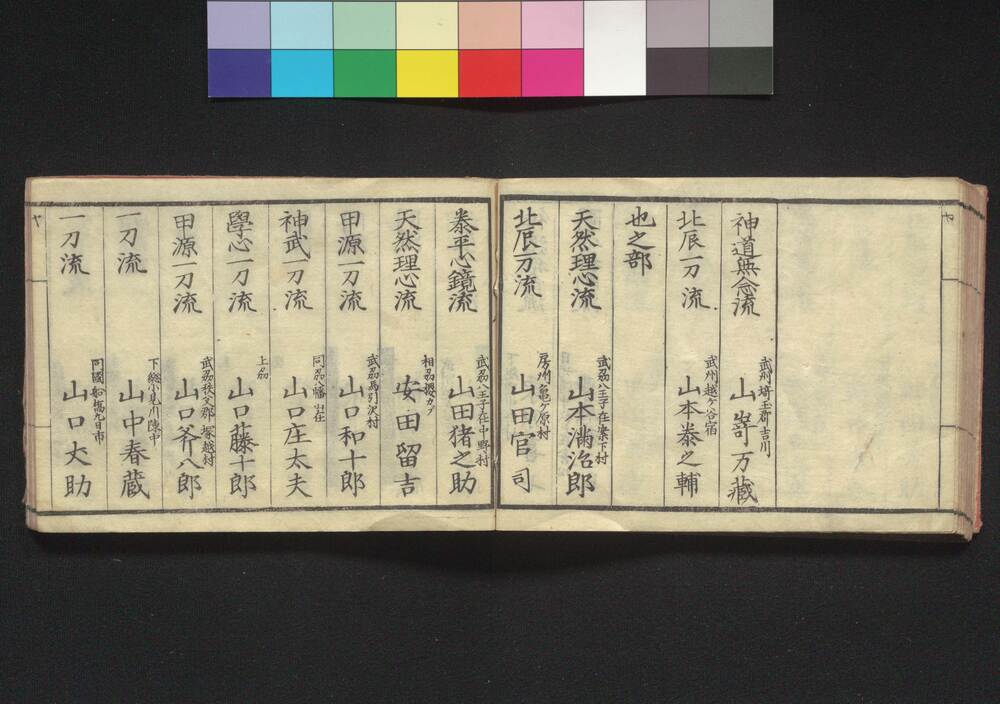 ヤ
神道無念流
武州埼玉郡吉川
山嵜万藏
北辰一刀流
武州越ヶ谷宿
山本泰之輔
也之部
天然理心流
武刕八王子在梁下村
山本満治郎
北辰一刀流
房州亀ヶ原村
山田官司
泰平心鏡流
武刕八王子在中野村
山田猪之助
天然理心流
相刕
安田留吉
甲源一刀流
武刕馬引沢村
山口和十郎
神武一刀流
同刕八幡山住
山口庄太夫
學心一刀流
上刕
山口藤十郎
甲源一刀流
武刕秩父郡塚越村
山口斧八郎
一刀流
下総小見川陣中
山中春蔵
一刀流
同國船橋九日市
山口丈助
ヤ